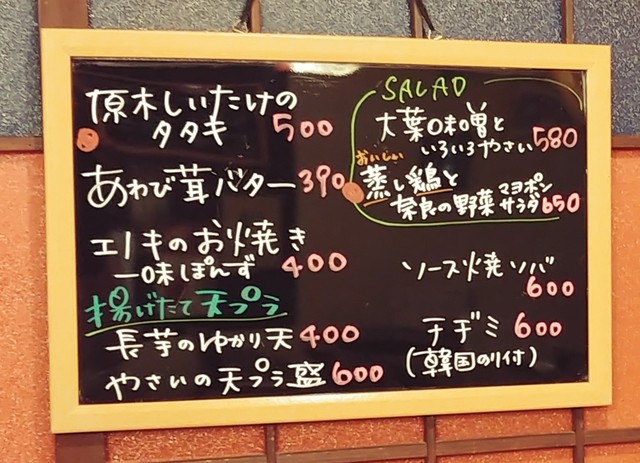 原木しいたけの
タタキ 500
あわび茸バター 390
エノキのお火焼き
一味ぽんず 400
揚げたて天プラ
長芋のゆかり天 400
やさいの天プラ盛 600
SALAD
大葉味噌と
いろいろやさい 580
おいしい
蒸し鶏と
奈良の野菜 マヨポン サラダ 650
ソース焼ソバ
600
チヂミ 600
(韓国のり付)